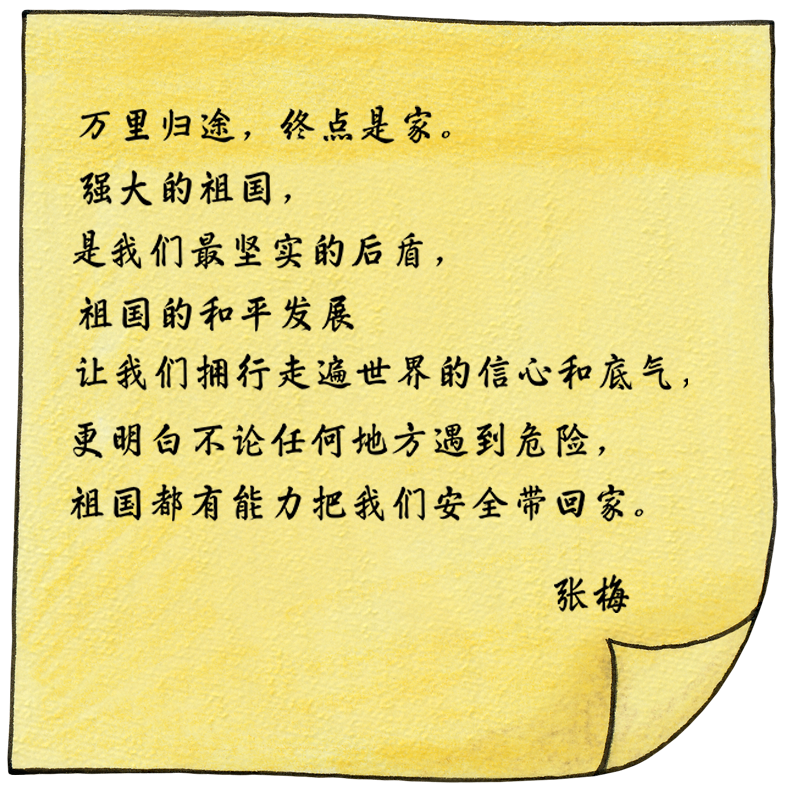 万里归途，终点是家。
强大的祖国，
是我们最坚实的后盾，
祖国的和平发展
让我们拥行走遍世界的信心和底气，
更明白不论任何地方遇到危险，
祖国都有能力把我们安全带回家。
张梅